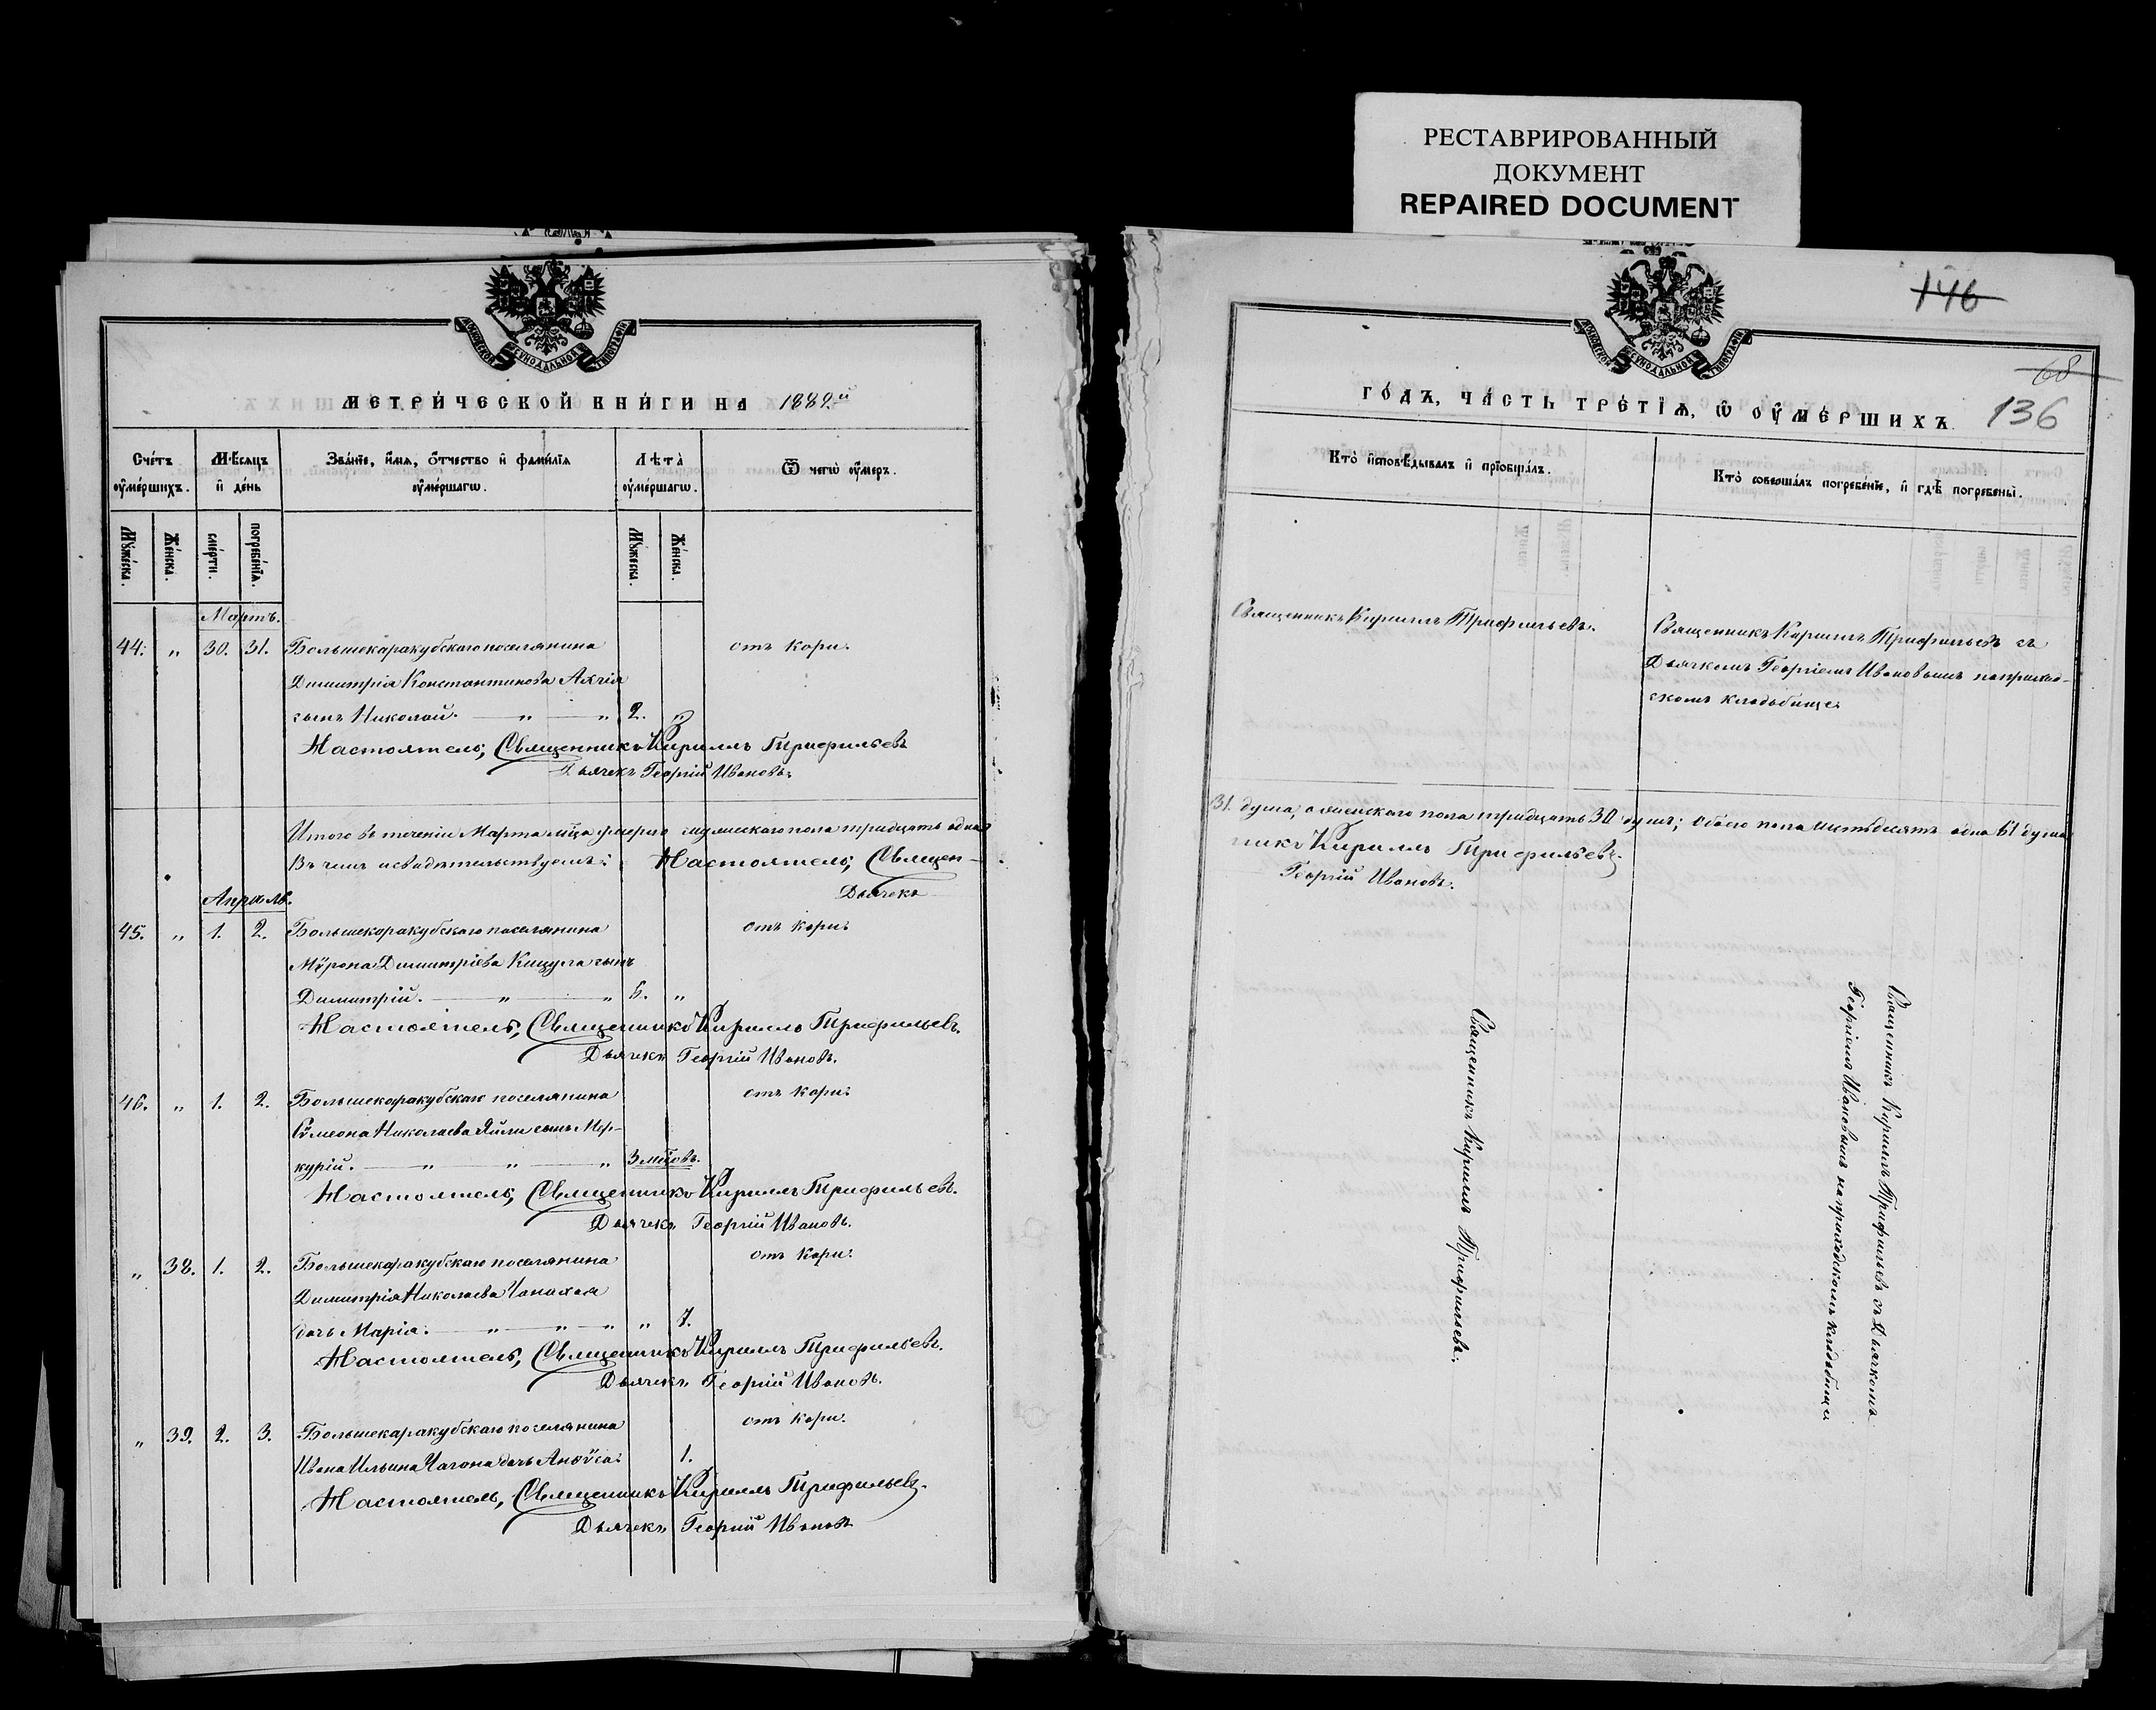 РЕСТАВРИРОВАННЫЙ
ДОКУМЕНТ
REPAIRED DOCUMENT
МОСКОВСКОЙ СУНОДАЛЬНОЙ ТИПОГРАФІИ
МЕТРИ́ЧЕСКОЙ КНИ́ГИ НА 1889.й
Сче́тъ оу҆ме́ршихъ.
Мѣ́сяцъ и҆ де́нь
Зва́нїе, и҆́мя, ѻ҆́тчество и҆ фами́лїя оу҆ме́ршагѡ.
Лѣ̀та̀ оу҆ме́ршагѡ.
Ѿ чегѡ̀ оу҆́меръ.
Мꙋ́жеска.
Же́нска.
сме́рти.
погребе́нїѧ.
Мꙋ́жеска.
Же́нска.
Мартъ.
44. „ 30. 31. Большекаракубскаго поселянина отъ кори.
Димитрія Константинова Ахчія
сынъ Николай. — „ — „ 2. „
Настоятель, Священникъ Кириллъ Трифильевъ
Дьячекъ Георгій Ивановъ.
Итого въ теченіи Марта мѣца умерло мужескаго пола тридцать одна
Въ чемъ и свидѣтельствуемъ: Настоятель, Священ-
Дьячекъ
Апрѣль.
45. „ 1. 2. Большекаракубскаго поселянина отъ кори.
Мѵрона Димитріева Кицула сынъ
Димитрій. — „ — „ 6. „
Настоятель, Священникъ Кириллъ Трифильевъ.
Дьячекъ Георгій Ивановъ.
46. „ 1. 2. Большекаракубскаго поселянина отъ кори.
Сѵмеона Николаева Яйли сынъ Мер-
курій. — „ — „ — „ 3 мѣсѣвъ.
Настоятель, Священникъ Кириллъ Трифильевъ.
Дьячекъ Георгій Ивановъ.
„ 38. 1. 2. Большекаракубскаго поселянина отъ кори.
Димитрія Николаева Чапахая
дочь Марія. — „ — „ — „ „ 7.
Настоятель, Священникъ Кириллъ Трифильевъ.
Дьячекъ Георгій Ивановъ.
„ 39. 2. 3. Большекаракубскаго поселянина отъ кори.
Ивана Ильина Чагона дочь Анѳуса. 1.
Настоятель, Священникъ Кириллъ Трифильевъ.
Дьячекъ Георгій Ивановъ
146
МОСКОВСКОЙ СУНОДАЛЬНОЙ ТИПОГРАФІИ
68
ГО́ДЪ, ЧА́СТЬ ТРЕ́ТІѦ, Ѡ ОУ҆МЕ́РШИХЪ. 136
Кто̀ и҆сповѣ́дывалъ и҆ прїобща́лъ.
Кто̀ соверша́лъ погребе́нїе, и҆ гдѣ̀ погребены̀.
Священникъ Кириллъ Трифильевъ.
Священникъ Кириллъ Трифильевъ съ
Дьячкомъ Георгіемъ Ивановымъ на приход-
скомъ кладбище.
31. душа, а женскаго пола тридцать 30 душъ; обоего пола шестьдесятъ одна 61 душа
никъ Кириллъ Трифильевъ.
Георгій Ивановъ.
Священникъ Кириллъ Трифильевъ.
Священникъ Кириллъ Трифильевъ съ Дьячкомъ
Георгіемъ Ивановымъ на приходскомъ кладбище.